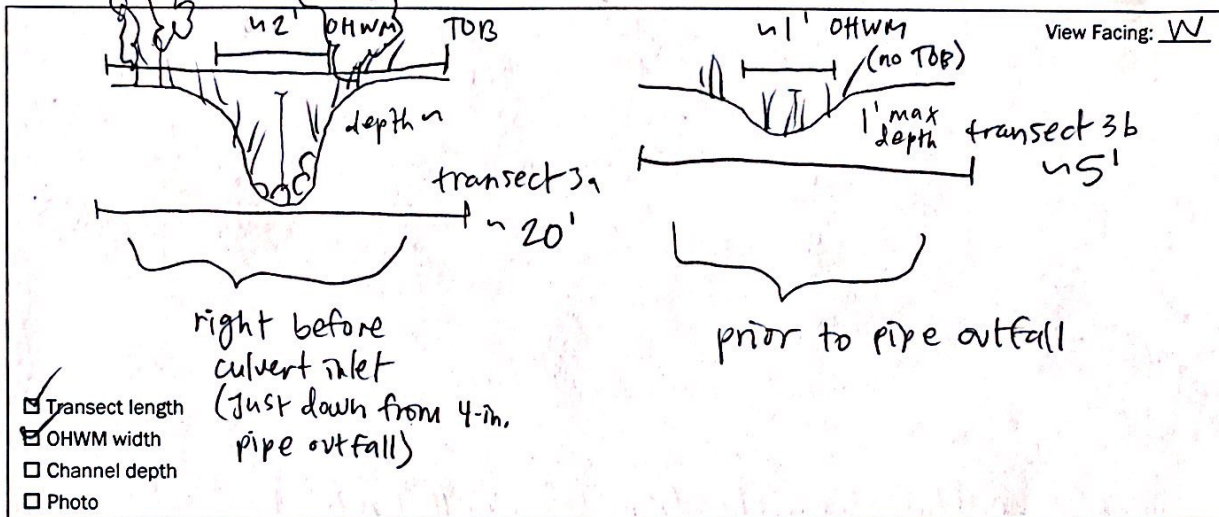 ~2' OHWM TOB
depth ~
transect 3a
~ 20'
right before
culvert inlet
(Just down from 4-in.
pipe outfall)
~1' OHWM
(no TOB)
1' max
depth
transect 3b
~5'
prior to pipe outfall
View Facing: W
Transect length
OHWM width
Channel depth
Photo